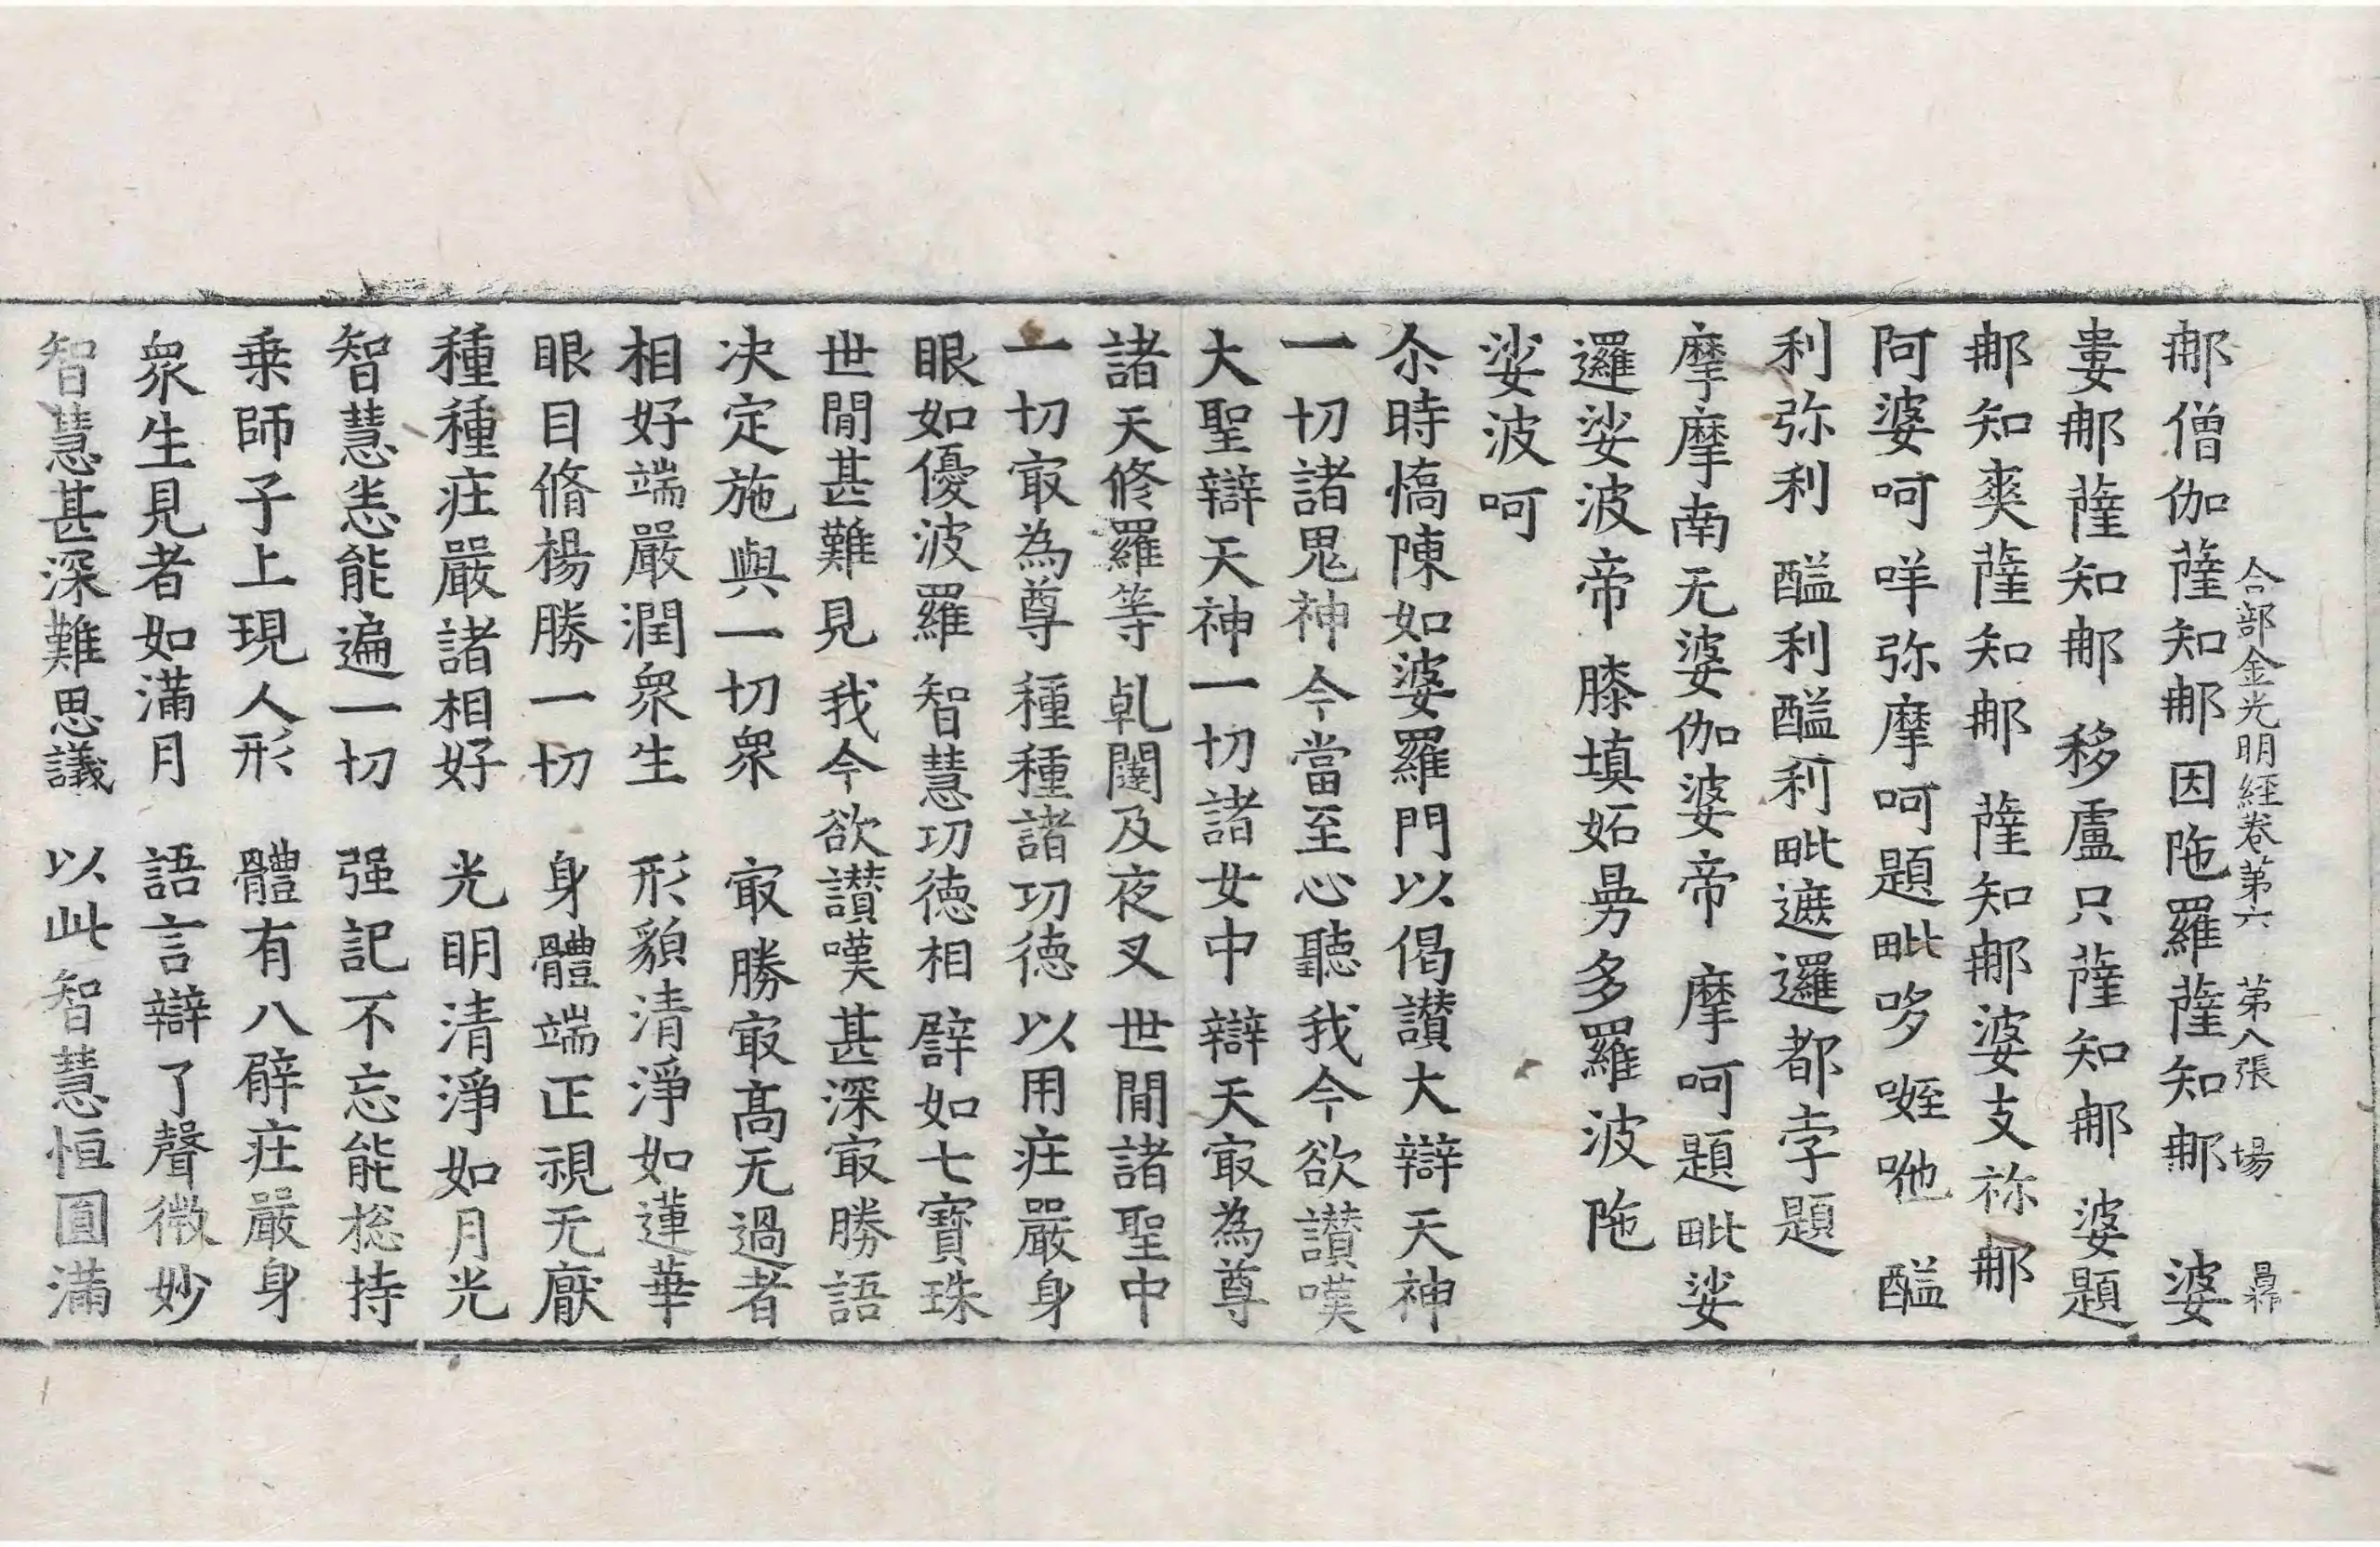 合部金光明經卷第六 第八張 場
𨚗僧伽薩知𨚗因陁羅薩知𨚗 婆
婁𨚗薩知𨚗 移盧只薩知𨚗 婆題
𨚗知奭薩知𨚗 薩知𨚗婆支祢𨚗
阿婆呵咩弥摩呵題毗哆 咃 醯
利弥利 醯利醯利毗遮邏都孛題
摩摩南无婆伽婆帝 摩呵題毗娑
邏娑波帝 膝填妬 多羅波陁
娑波呵
尒時憍陳如婆羅門以偈讃大辯天神
一切諸鬼神 今當至心聽 我今欲讃嘆
大聖辯天神 一切諸女中 辯天㝡為尊
諸天脩羅等 乹闥及夜叉 世間諸聖中
一切㝡為尊 種種諸功德 以用庄嚴身
眼如優波羅 智慧功德相 辟如七寶珠
世間甚難見 我今欲讃嘆 甚深㝡勝語
决定施與一切衆 㝡勝㝡髙无過者
相好端嚴潤衆生 形貌清淨如蓮華
眼目脩楊勝一切 身體端正視无厭
種種庄嚴諸相好 光明清淨如月光
智慧悉能遍一切 强記不忘能捴持
乗師子上現人形 體有八臂庄嚴身
衆生見者如滿月 語言辯了聲微妙
智慧甚深難思議 以此智慧恒圓滿